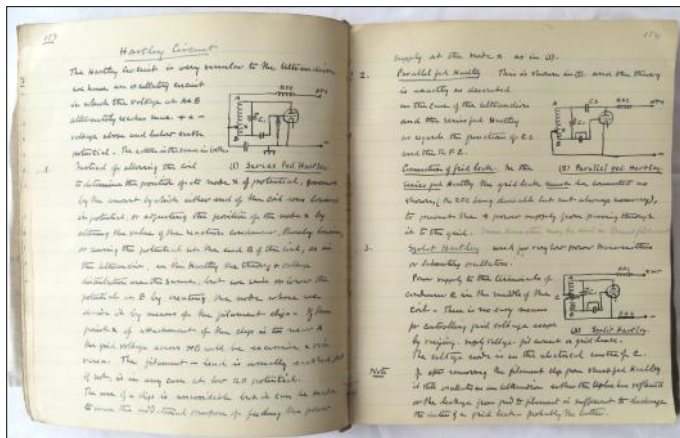 157
Hartley Circuit
The Hartley Circuit is very similar to the ultraudion
we have an oscillatory circuit
in which the voltage at A & B
alternately reaches max + & -
voltage above and below earth
potential - The action is the same in both
(1) Series Fed Hartley
1. Instead of allowing the coil
to determine the position of its node of potential, governed
by the amount by which either end of the coil was loaded
in potential, or adjusting the position of the node by
altering the value of the reaction condenser, thereby lowering
or raising the potential at the end B of the coil, as in
the ultraudion, in the Hartley the theory & voltage
distribution are the same, but we raise or lower the
potential at B by creating the node where we
desire it by means of the filament clip - If the
point of attachment of the clip is too near A
the grid voltage across XB will be excessive & vice
versa. The filament lead is usually earthed, but
if not, is in any case at low R.F. potential.
The use of a clip is unavoidable but it can be made
to serve the additional purpose of feeding the power
supply at the node x as in (1).
2. Parallel fed Hartley This is shown in (2) and the theory
is exactly as described
in the case of the ultraudion
and the series fed Hartley
as regards the function of C.S
and the R.F.C.
(2) Parallel fed Hartley
Connection of grid leak. In the
series fed Hartley the grid leak must be connected as
shown, (the RFC being desirable but not always necessary),
to prevent the + power supply from passing through
it to the grid.
3. Split Hartley used for very low power transmitters
or laboratory oscillators.
Power supply to the terminals of
condenser C in the middle of the
coil. - There is no easy means
for controlling grid voltage except
by varying supply voltage, filament or grid leak.
The voltage node is in the electrical centre of C.
(3) Split Hartley
Note If after removing the filament clip from shunt fed Hartley
it still oscillates as an ultraudion
or the leakage from grid to filament is sufficient to discharge
the action of a grid leak - probably the latter.